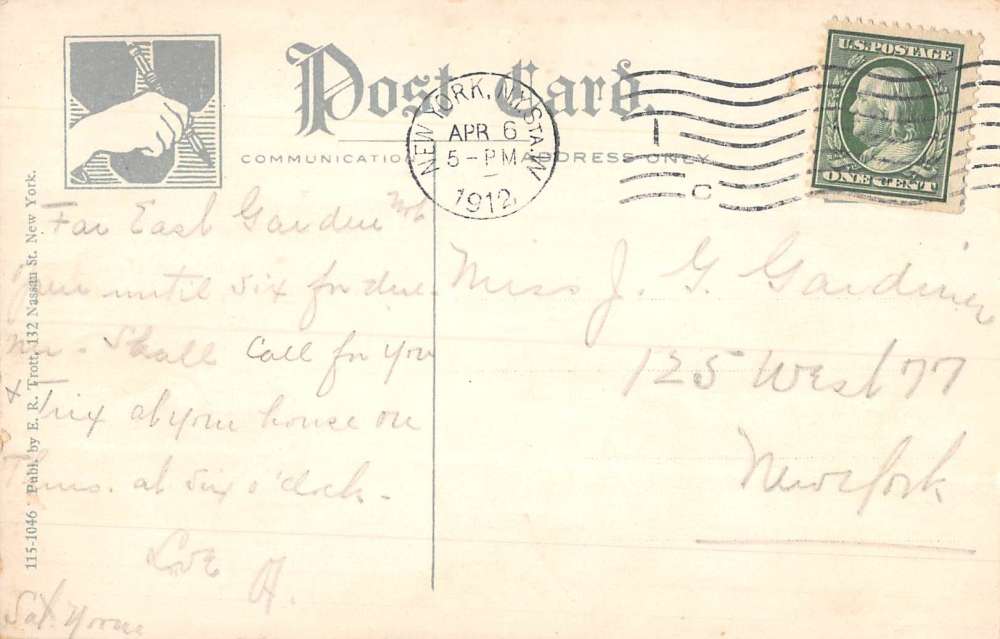 Post Card.
COMMUNICATION
ADDRESS ONLY
NEW YORK, N.Y. STA. W
APR 6
5-PM
1912
1
C
U.S. POSTAGE
ONE CENT
115-1046 Publ. by E. R. Trott, 132 Nassau St. New York.
Far East Garden
until six for din
ner. Shall call for you
x Trix at your house on
Thurs. at six o'clock-
Love
H.
Sat.
Miss J. G. Gardiner
125 West 77
New York